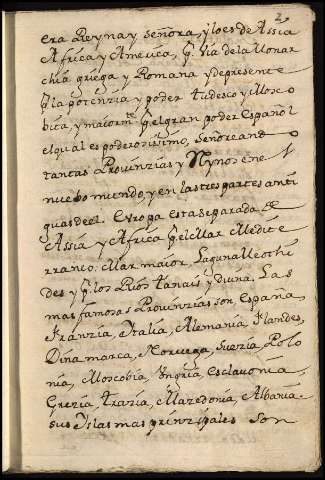 2
era Reyna y señora, y lo es de Assia
Africa y America, pr via dela Monar
chia griega y Romana y depresente
pr la potenzia y poder tudesco y Mosc o
bita, y maiormte pr el gran poder Español
el qual es poderosissimo, señoreand o
tantas Provinzias y Reynos en e l
nuebo mundo y en las tres partes anti
guas de el. Europa esta separada de
Assia y Africa pr el Mar Medite
rraneo. Mar maior, Laguna Meothi
des y pr los Rios tanais y duina. Las
mas famosas Provinzias son, España,
Franzia, Italia, Alemania, Flandes,
Dinamarca, Noruega, Suezia, Polo
nia, Moscobia, Vngria, Esclavonia,
Grezia, trazia, Mazedonia, Albania.
sus Yslas mas prinzipales son